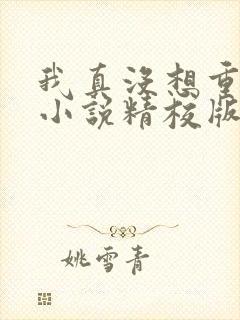 我真没想重
小说精校版
姚雪青